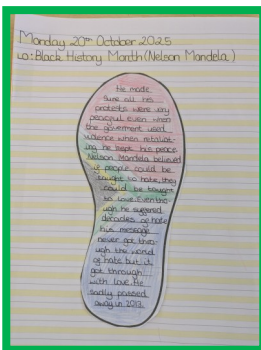 Monday 20th October 2025
LO: Black History Month (Nelson Mandela)
He made
sure all his
protests were very
peaceful even when
the goverment used
violence when retaliat-
ing he kept his peace.
Nelson Mandela believed
if people could be
taught to hate, they
could be taught
to love. Even tho-
ugh he suffered
decades of hate
his message
never got thro-
ugh the world
of hate but it
got through
with love. He
sadly passed
away in 2013.